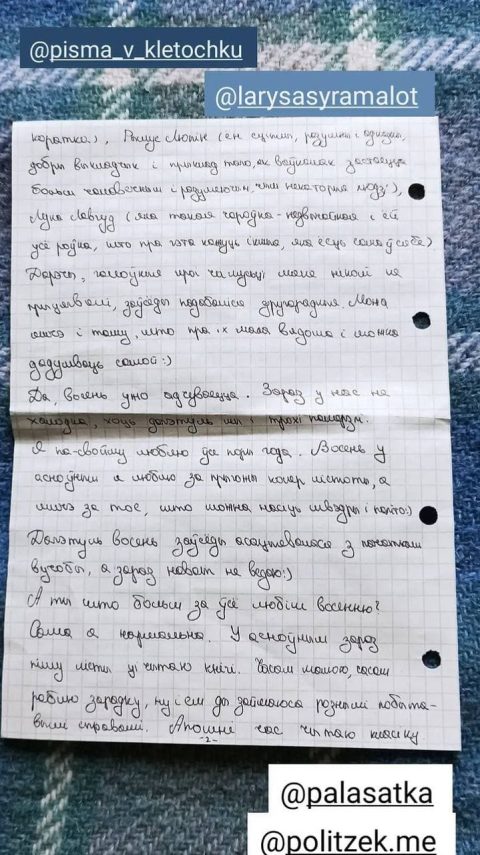 @pisma_v_kletochku
@larysasyramalot
каротка), Рэмус Люпін (ён сціплы, разумны і адказны,
добры выкладчык і прыклад таго, як ваўкалак застаецца
больш чалавечным і разумеючым, чым некаторыя людзі),
Луна Лавгуд (яна такая чароўна-недзіўная і ёй
усё роўна, што пра гэта кажуць іншыя, яна ёсць сама ў сабе)
Дарэчы, галоўныя героі чамусьці мяне ніколі не
прыцягвалі, заўсёды падабаліся другарадныя. Можа
яшчэ і таму, што пра іх мала вядома і можна
дадумваць самой:)
Да, восень ужо адчуваецца. Зараз у нас не
холадна, хоць дагэтуль мы і трохі памерзлі.
Я па-свойму люблю ўсе поры года. Восень у
асноўным я люблю за прыгожы колер лістоты, а
яшчэ за тое, што можна насіць швэдры і паліто:)
Дагэтуль восень заўсёды асацыявалася з пачаткам
вучобы, а зараз нават не ведаю:)
А ты што больш за ўсё любіш восенню?
Сама я нармальна. У асноўным зараз
пішу лісты ці чытаю кнігі. Часам малюю, часам
раблю зарадку, ну і ем ды займаюся рознымі побыта-
вымі справамі. Апошні час чытаю класіку
-2-
@palasatka
@politzek.me